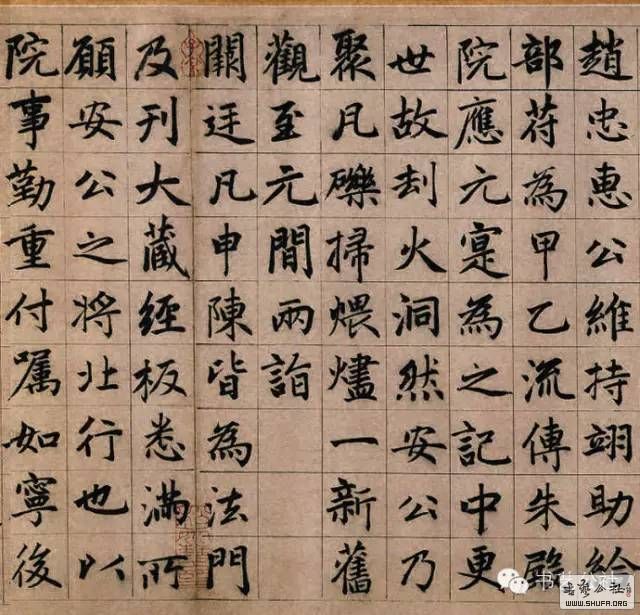 趙忠惠公維持翊助給
部符為甲乙流傳朱殿
院應元寔為之記中更
世故刦火洞然安公乃
聚凡礫掃煨燼一新舊
觀至元間兩詣
闕廷凡申陳皆為法門
及刊大藏經板悉滿所
願安公之將北行也以
院事勤重付囑如寧後
书艺公社
WWW.SHUFA.ORG